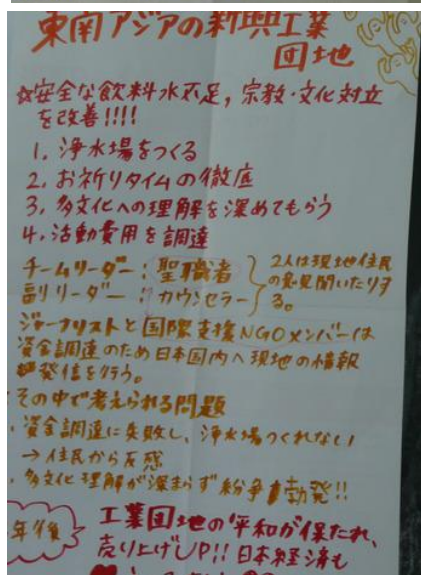 東南アジアの新興工業
団地
☆安全な飲料水不足，宗教・文化対立
を改善!!!!
1. 浄水場をつくる
2. お祈りタイムの徹底
3. 多文化への理解を深めてもらう
4. 活動費用を調達
チームリーダー：聖職者
副リーダー：カウンセラー
2人は現地住民
の意見聞いたりす
る。
ジャーナリストと国際支援NGOメンバーは
資金調達のため日本国内へ現地の情報
発信を行う。
その中で考えられる問題
・資金調達に失敗し、浄水場つくれない
→住民から反感
・多文化理解が深まらず紛争勃発!!
年後
工業団地の平和が保たれ、
売り上げUP!! 日本経済も